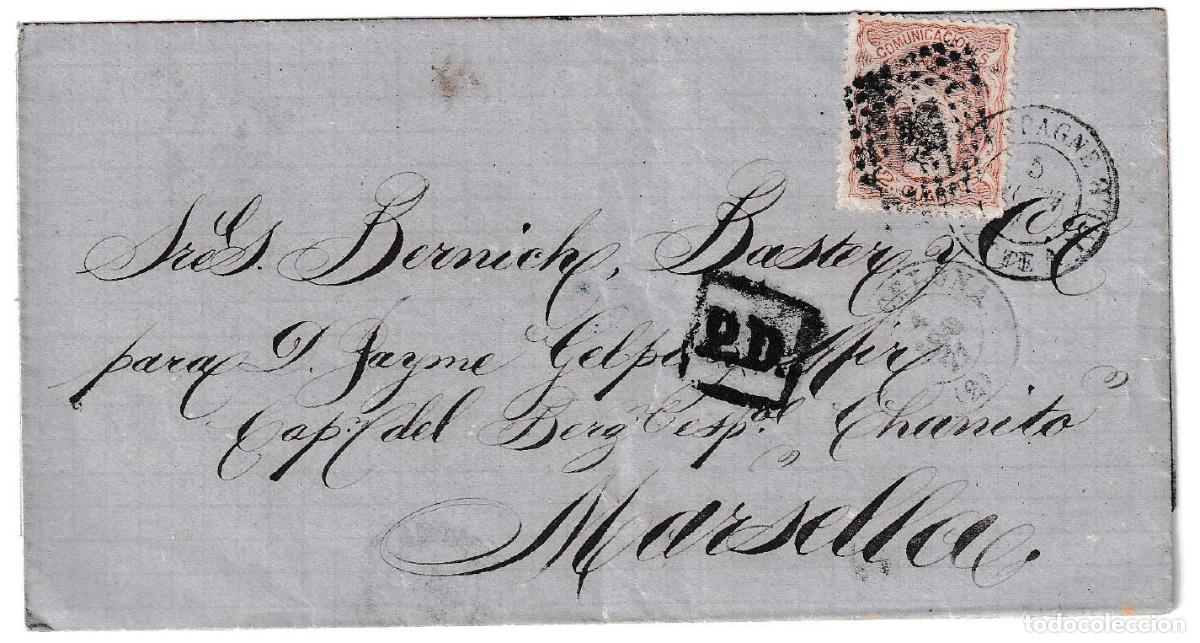 COMUNICACIONES
Sres. Bernich, Baster y Ca
para D. Jayme Gelpi y Mir
P.D.
Capn. del Bergn. espol. Chanito
Marsella
todocoleccion